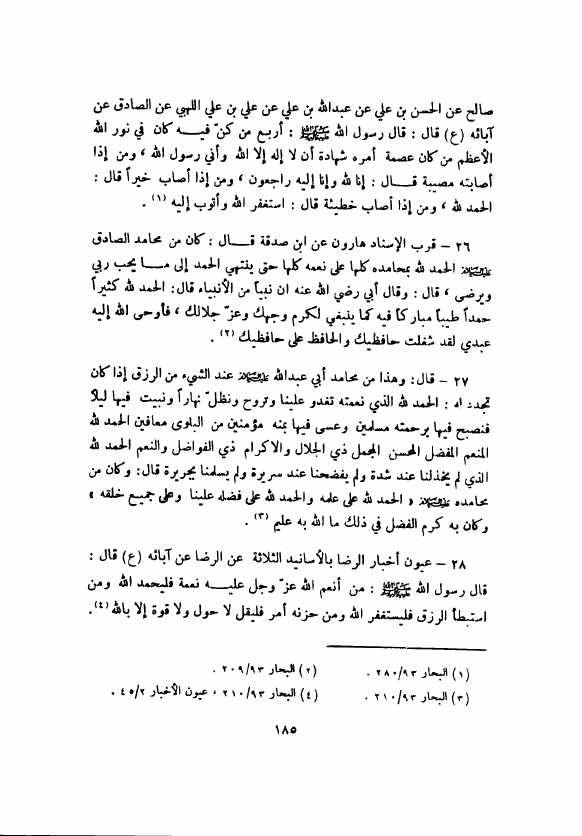 صالح عن الحسن بن علي عن عبدالله بن علي عن علي بن علي اللهبي عن الصادق عن
آبائه (ع) قال : قال رسول الله ﷺ : أربع من كنّ فيـــه كان في نور الله
الأعظم من كان عصمة أمره شهادة أن لا إله إلا الله وأني رسول الله ، ومن إذا
أصابته مصيبة قـــال : إنا لله وإنا إليه راجعون ، ومن إذا أصاب خيراً قال :
الحمد لله ، ومن إذا أصاب خطيئة قال : استغفر الله وأتوب إليه (١) .
٢٦ – قرب الإسناد هارون عن ابن صدقة قـــال : كان من محامد الصادق
عليه السلام الحمد لله بمحامده كلها على نعمه كلها حتى ينتهي الحمد إلى مـــا يحب ربي
ويرضى ، قال : وقال أبي رضي الله عنه ان نبياً من الأنبياء قال : الحمد لله كثيراً
حمداً طيباً مباركاً فيه كما ينبغي لكرم وجهك وعزّ جلالك ، فأوحى الله إليه
عبدي لقد شغلت حافظيك والحافظ على حافظيك (٢) .
٢٧ – قال : وهذا من محامد أبي عبدالله عليه السلام عند الشيء من الرزق إذا كان
تجدد له : الحمد لله الذي نعمته تغدو علينا وتروح ونظلّ نهاراً ونبيت فيها ليلاً
فنصبح فيها برحمته مسلمين وعسى فيها بمنه مؤمنين من البلوى معافين الحمد لله
المنعم المفضل المحسن المجمل ذي الجلال والاكرام ذي الفواضل والنعم الحمد لله
الذي لم يخذلنا عند شدة ولم يفضحنا عند سريرة ولم يسلمنا بجريرة قال : وكان من
محامده عليه السلام « الحمد لله على علمه والحمد لله على فضله علينا وعلى جميع خلقه »
وكان به كرم الفضل في ذلك ما الله به عليم (٣) .
٢٨ – عيون أخبار الرضا بالأسانيد الثلاثة عن الرضا عن آبائه (ع) قال :
قال رسول الله ﷺ : من أنعم الله عزّ وجل عليـــه نعمة فليحمد الله ومن
استبطأ الرزق فليستغفر الله ومن حزنه أمر فليقل لا حول ولا قوة إلا بالله (٤) .
(١) البحار ٢٨٠/٩٣ . (٢) البحار ٢٠٩/٩٣ .
(٣) البحار ٢١٠/٩٣ . (٤) البحار ٢١٠/٩٣ ، عيون الأخبار ٤٥/٢ .
١٨٥